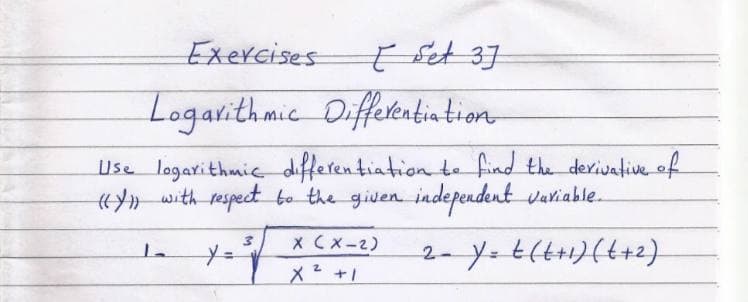 Exercises [ Set 3]
Logarithmic Differentiation
Use logarithmic differentiation to find the derivative of
((y)) with respect to the given independent variable.
1- y = ∛(x(x-2) / (x² + 1)) 2- y = t(t+1)(t+2)